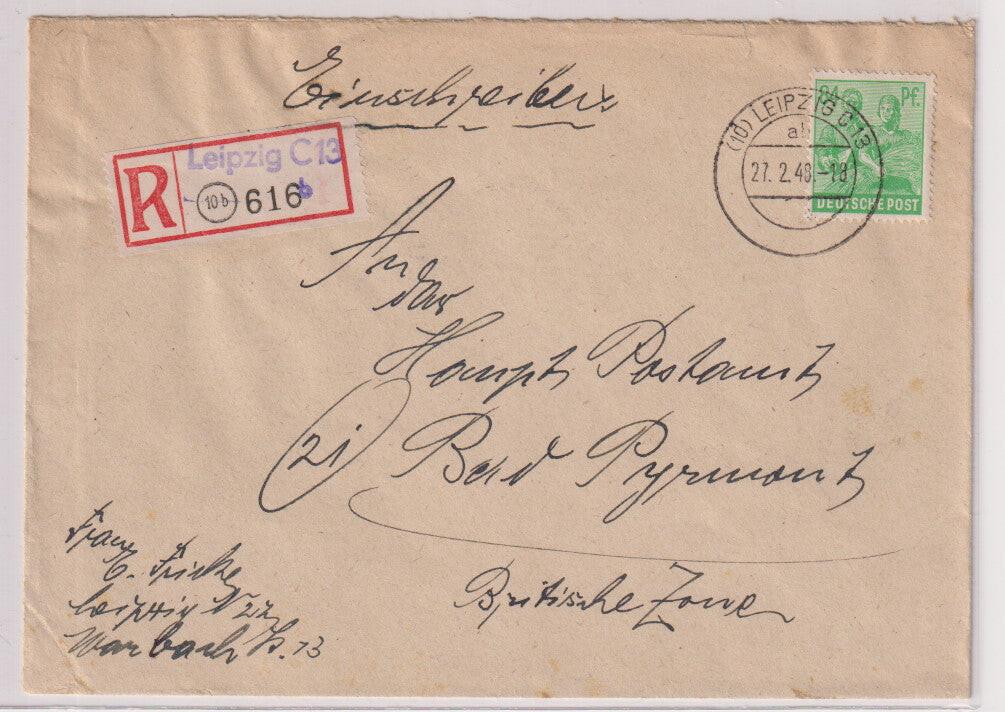 Einschreiben
R
Leipzig C 13
b
10b
616
84 Pf.
DEUTSCHE POST
(10) LEIPZIG C 13
27. 2. 48.-18
An
das
Haupt Postamt
(21) Bad Pyrmont
Britische Zone
Frau
E. Fricke
Leipzig N 22
Warbach St. 13